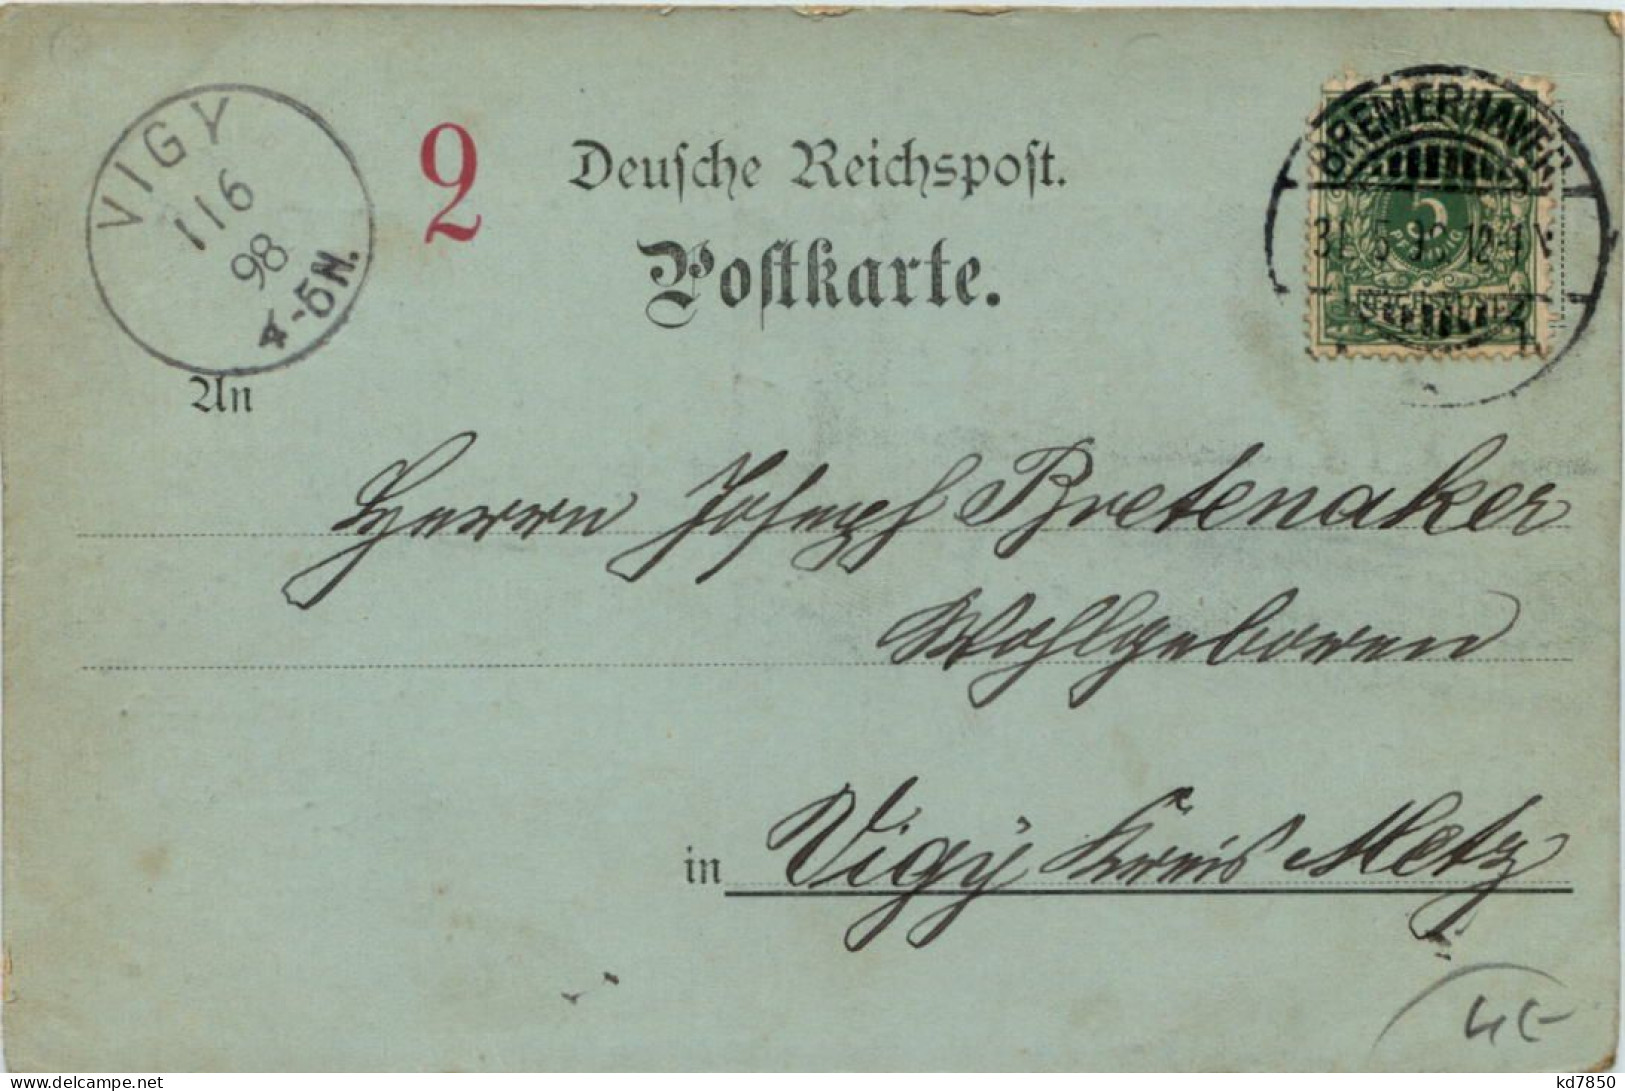 VIGY
1 1 6
98
4-5N.
2
Deutsche Reichspost.
Postkarte.
BREMERHAVEN
31.5.98.12-1
5
PFENNIG
An
Herrn Joseph Bretenaker
Wohlgeboren
in Vigy Kreis Metz
4E-
kd7850